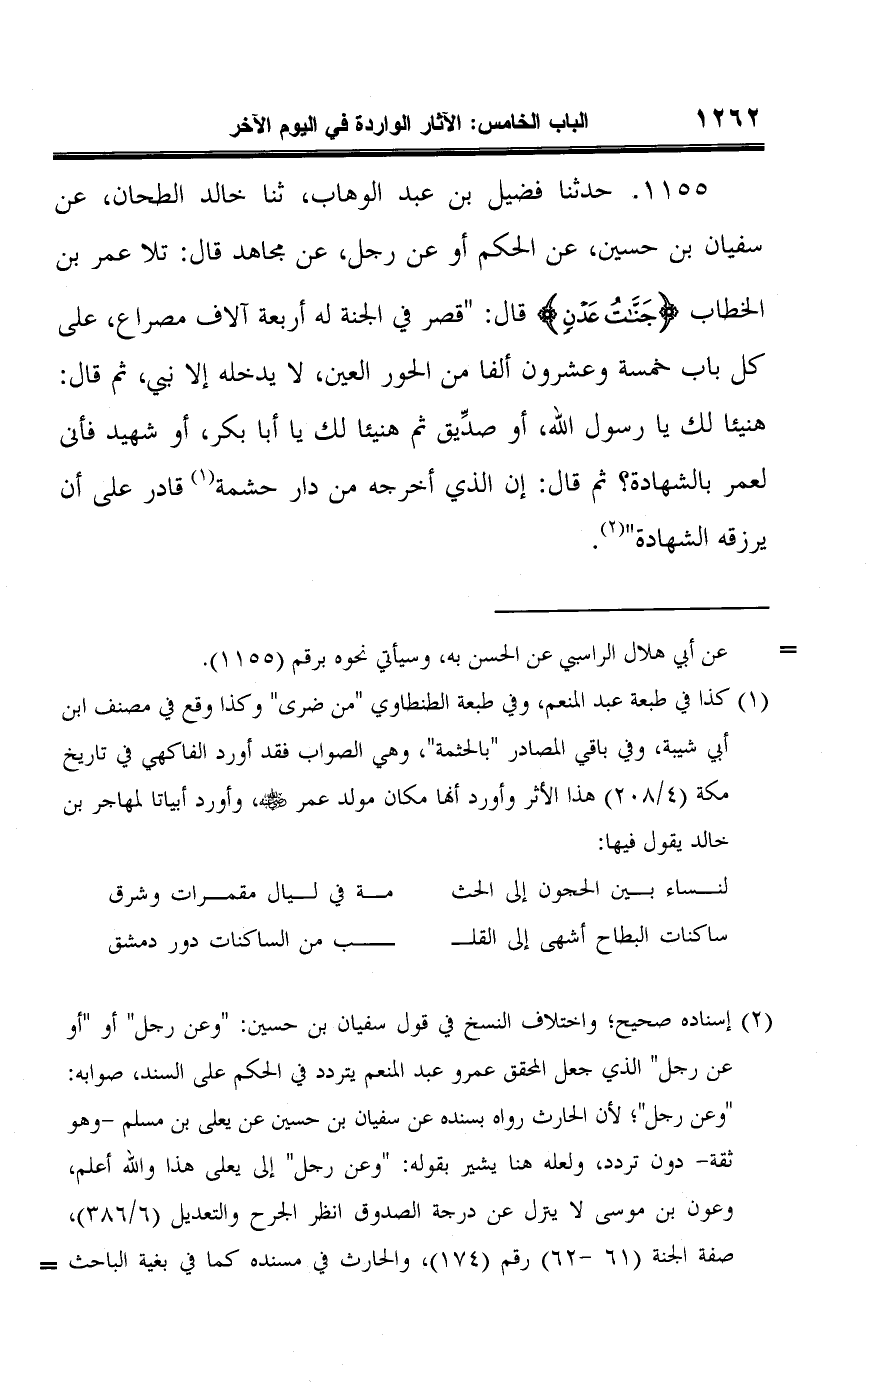 ١٢٦٢ الباب الخامس: الآثار الواردة في اليوم الآخر
١١٥٥. حدثنا فضيل بن عبد الوهاب، ثنا خالد الطحان، عن
سفيان بن حسين، عن الحكم أو عن رجل، عن مجاهد قال: تلا عمر بن
الخطاب ﴿جَنَّٰتُ عَدْنٍ﴾ قال: "قصر في الجنة له أربعة آلاف مصراع، على
كل باب خمسة وعشرون ألفا من الحور العين، لا يدخله إلا نبي، ثم قال:
هنيئا لك يا رسول الله، أو صدِّيق ثم هنيئا لك يا أبا بكر، أو شهيد فأنى
لعمر بالشهادة؟ ثم قال: إن الذي أخرجه من دار حشمة(١) قادر على أن
يرزقه الشهادة"(٢).
= عن أبي هلال الراسبي عن الحسن به، وسيأتي نحوه برقم (١١٥٥).
(١) كذا في طبعة عبد المنعم، وفي طبعة الطنطاوي "من ضرى" وكذا وقع في مصنف ابن
أبي شيبة، وفي باقي المصادر "بالحثمة"، وهي الصواب فقد أورد الفاكهي في تاريخ
مكة (٢٠٨/٤) هذا الأثر وأورد أنها مكان مولد عمر ﷺ، وأورد أبياتا لمهاجر بن
خالد يقول فيها:
لنـــساء بـــين الحجون إلى الحث مـــة في لـــيال مقمـــرات وشرق
ساكنات البطاح أشهى إلى القلـــ ـــــب من الساكنات دور دمشق
(٢) إسناده صحيح؛ واختلاف النسخ في قول سفيان بن حسين: "وعن رجل" أو "أو
عن رجل" الذي جعل المحقق عمرو عبد المنعم يتردد في الحكم على السند، صوابه:
"وعن رجل"؛ لأن الحارث رواه بسنده عن سفيان بن حسين عن يعلى بن مسلم -وهو
ثقة- دون تردد، ولعله هنا يشير بقوله: "وعن رجل" إلى يعلى هذا والله أعلم،
وعون بن موسى لا ينزل عن درجة الصدوق انظر الجرح والتعديل (٣٨٦/٦)،
صفة الجنة (٦١ -٦٢) رقم (١٧٤)، والحارث في مسنده كما في بغية الباحث =